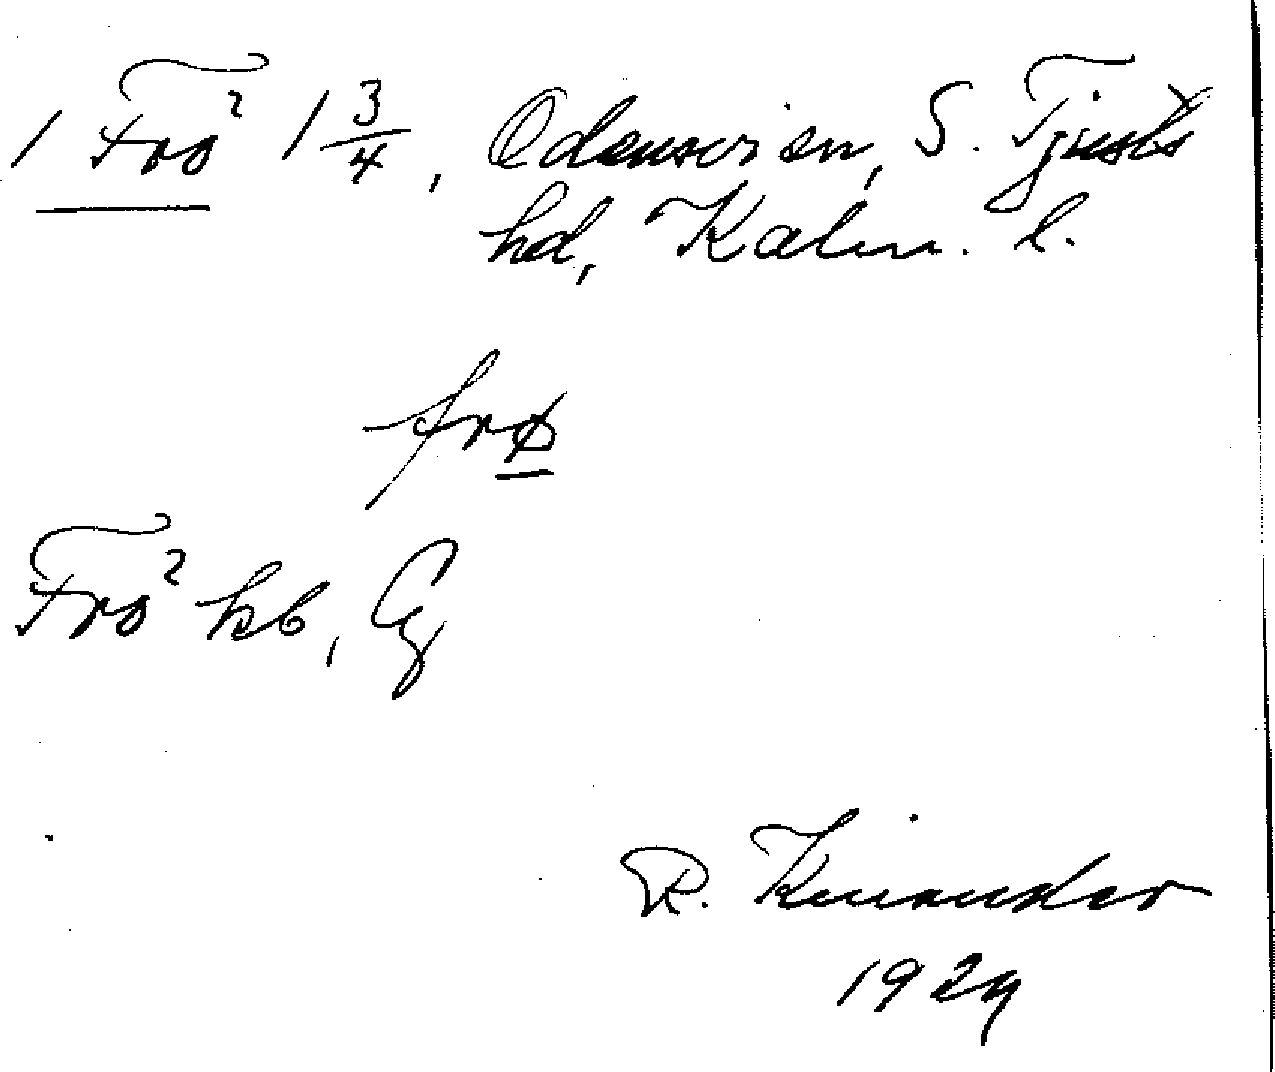 1 Fro² 1 3/4, Odensvi en, S. Tjusts
hd, Kalm. l.
frø
Fro² kb, Gz
R. Kinander
1929